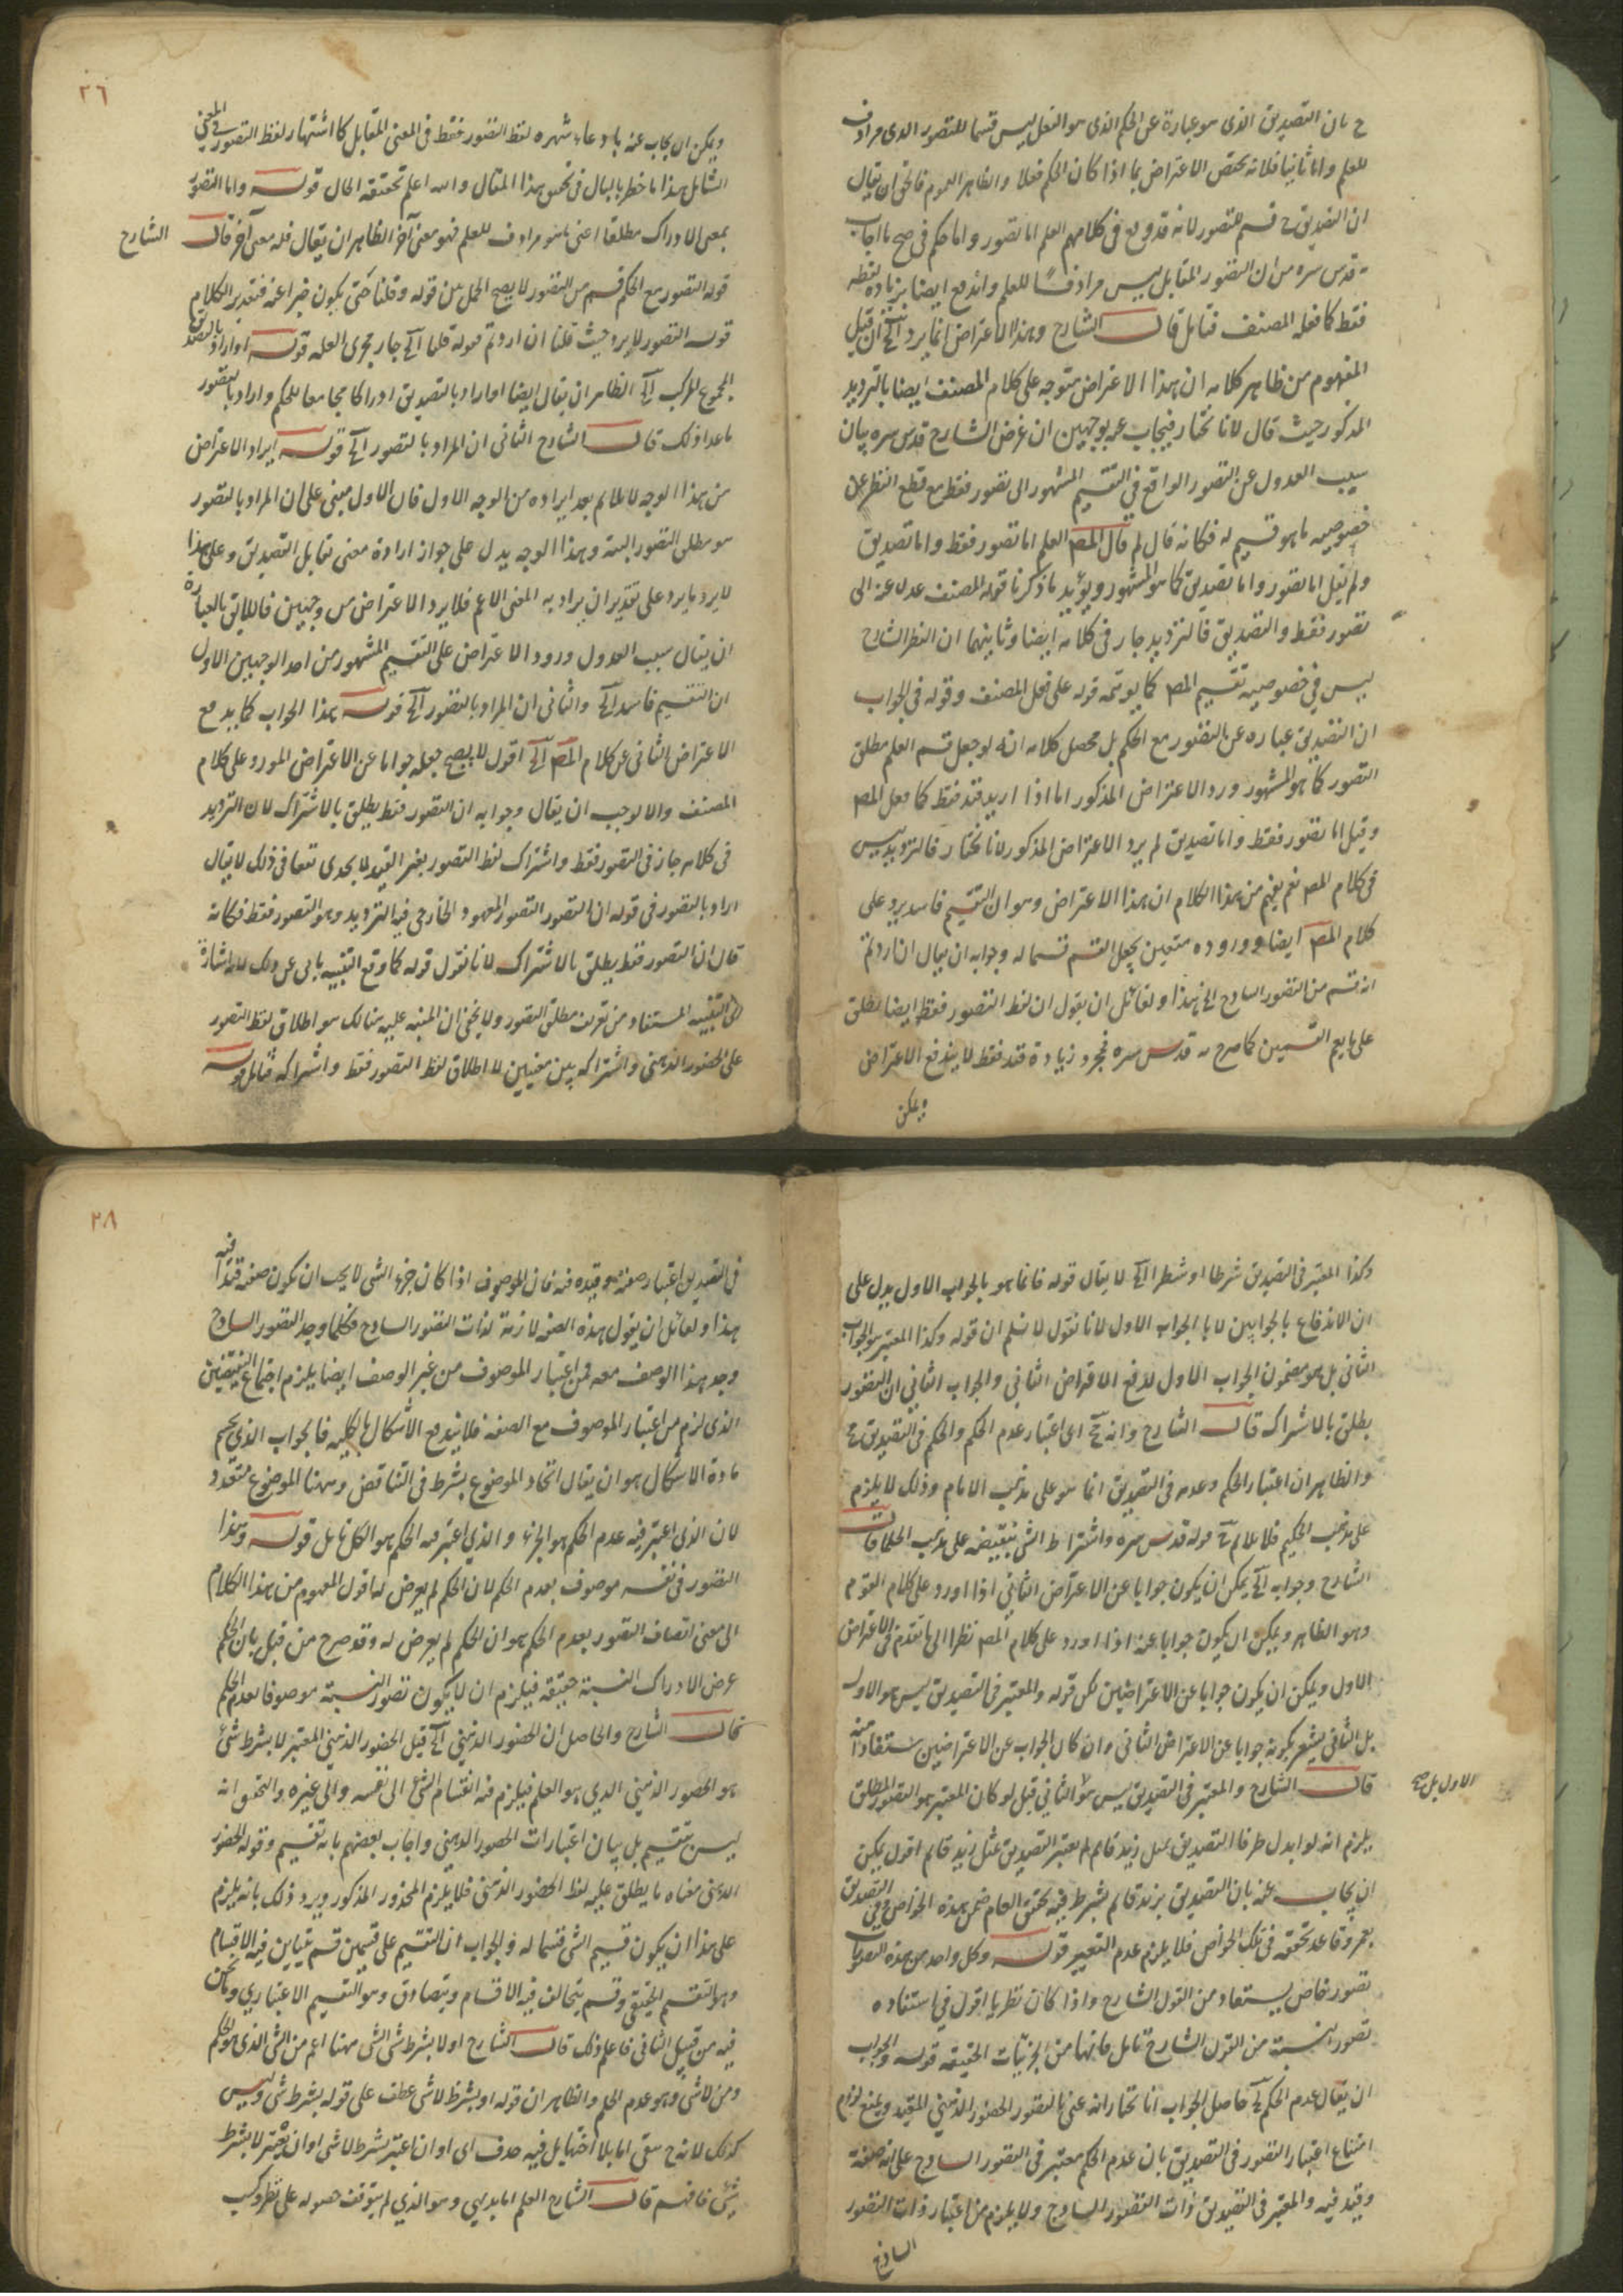 ح بان التصديق الذى هو عبارة عن الحكم الذى هو الفعل ليس قسما للتصور الذى مرادف
للعلم واما ثانيا فلانه يختص الاعتراض بما اذا كان الحكم فعلا والظاهر العموم فالحق ان يقال
ان التصديق ح قسم للتصور لانه قد وقع فى كلامهم العلم اما تصور واما حكم فى صح ما اجاب
قدس سره من ان التصور المقابل ليس مرادفا للعلم واندفع ايضا بزيادة لفظه
فقط كما فعله المصنف فتامل قال الشارح وهذا الاعتراض انما يرد الخ ان قيل
المفهوم من ظاهر كلامه ان هذا الاعتراض متوجه على كلام المصنف ايضا بالترديد
المذكور حيث قال لانا نختار فيجاب عنه بوجهين ان غرض الشارح قدس سره بيان
سبب العدول عن التصور الواقع فى التقسيم المشهور الى تصور فقط مع قطع النظر عن
خصوصيه ما هو قسيم له فكانه قال لم قال المص العلم اما تصور فقط واما تصديق
ولم يقل اما تصور واما تصديق كما هو المشهور ويؤيد ما ذكرنا قوله المصنف عدل عنه الى
تصور فقط والتصديق فالترديد جار فى كلامه ايضا وثانيهما ان النظر الشارح
ليس فى خصوصيه تقسيم المص كما يوهمه قوله على فعل المصنف وقوله فى الجواب
ان التصديق عباره عن التصور مع الحكم بل محصل كلامه انه لو جعل قسم العلم مطلق
التصور كما هو المشهور ورد الاعتراض المذكور اما اذا اريد قيد فقط كما فعل المص
وقيل اما تصور فقط واما تصديق لم يرد الاعتراض المذكور لانا نختار فالترديد ليس
فى كلام المص نعم يفهم من هذا الكلام ان هذا الاعتراض وهو ان التقسيم فاسد يرد على
كلام المص ايضا ووروده متعين بجعل القسم قسما له وجوابه ان يقال ان اردتم
انه قسم من التصور الساذج الخ هذا ولقائل ان يقول ان لفظ التصور فقط ايضا يطلق
على ما يعم القسمين كما صرح به قدس سره فمجرد زيادة قيد فقط لا يندفع الاعتراض
ويمكن
٢٦
ويمكن ان يجاب عنه بادعاء شهره لفظ التصور فقط فى المعنى المقابل كاشتهار لفظ التصور فى المعنى
الشامل هذا ما خطر بالبال فى تحقيق هذا المقال والله اعلم بحقيقة الحال قوله واما التصور
بمعنى الادراك مطلقا اعنى ما هو مرادف للعلم فهو معنى آخر الظاهر ان يقال فله معنى آخر قال
الشارح
قوله التصور مع الحكم قسم من التصور لا يصح الحمل بين قوله وقلنا حتى يكون خبرا عنه فتقدير الكلام
قوله التصور لا يرد حيث قلنا ان اردتم قوله قلنا الخ جار مجرى العله قوله او اراد بالتصديق
المجموع المركب الخ الظاهر ان يقال ايضا او اراد بالتصديق ادراكا مجامعا للحكم واراد بالتصور
ما عدا ذلك قال الشارح الثانى ان المراد بالتصور الخ قوله ايراد الاعتراض
من هذا الوجه لا يلائم بعد ايراده من الوجه الاول فان الاول مبنى على ان المراد بالتصور
هو مطلق التصور البتة وهذا الوجه يدل على جواز ارادة معنى تقابل التصديق وعلى هذا
لا يرد ما يرد على تقدير ان يراد به المعنى الاعم فلا يرد الاعتراض من وجهين فاللايق بالعبارة
ان يقال سبب العدول ورود الاعتراض على التقسيم المشهور من احد الوجهين الاول
ان التقسيم فاسد الخ والثانى ان المراد بالتصور الخ قوله هذا الجواب كما يدفع
الاعتراض الثانى عن كلام المص الخ اقول لا يصح جعله جوابا عن الاعتراض المورد على كلام
المصنف والا لوجب ان يقال وجوابه ان التصور فقط يطلق بالاشتراك لان الترديد
فى كلامه جاز فى التصور فقط واشتراك لفظ التصور بغير القيد لا يجدى نفعا فى ذلك لا يقال
اراد بالتصور فى قوله ان التصور التصور المعهود الخارجى فيه الترديد وهو التصور فقط فكانه
قال ان التصور فقط يطلق بالاشتراك لانا نقول قوله كما وقع التنبيه يابى عن ذلك لانه اشارة
الى التنبيه المستفاد من تعريف مطلق التصور ولا يخفى ان المنبه عليه هنالك هو اطلاق لفظ التصور
على الحضور الذهنى واشتراكه بين معنيين لا اطلاق لفظ التصور فقط واشتراكه فتامل قوله
وكذا المعتبر فى التصديق شرطا او شطرا الخ لا يقال قوله فانما هو بالجواب الاول يدل على
ان الاندفاع بالجوابين لا بالجواب الاول لانا نقول لا نسلم ان قوله وكذا المعتبر هو الجواب
الثانى بل هو مضمون الجواب الاول لدفع الاعتراض الثانى والجواب الثانى ان التصور
يطلق بالاشتراك قال الشارح وانه مح اى اعتبار عدم الحكم والحكم فى التصديق مح
والظاهر ان اعتبار الحكم وعدمه فى التصديق انما هو على مذهب الامام وذلك لا يلزم
على مذهب الحكيم فلا يلائم مع قوله قدس سره واشتراط الشئ بنقيضه على مذهب الحكما قال
الشارح وجوابه الخ يمكن ان يكون جوابا عن الاعتراض الثانى اذا اورد على كلام القوم
وهو الظاهر ويمكن ان يكون جوابا عنه اذا اورد على كلام المص نظرا الى ما تقدم فى الاعتراض
الاول ويمكن ان يكون جوابا عن الاعتراضين لكن قوله والمعتبر فى التصديق ليس هو الاول
بل الثانى يشعر بكونه جوابا عن الاعتراض الثانى وان كان الجواب عن الاعتراضين مستفادا منه
قال الشارح والمعتبر فى التصديق ليس هو الثانى قيل لو كان المعتبر هو التصور المطلق
الاول بل صح
يلزم انه لو ابدل طرفا التصديق بمثل زيد قائم لم يعتبر التصديق بمثل زيد قائم اقول يمكن
ان يجاب عنه بان التصديق بزيد قائم يشترط فيه تحقق العام ضمن هذه الخواص وفى التصديق
بعمرو قاعد تحققه فى تلك الخواص فلا يلزم عدم التغيير قوله وكل واحد من هذه التصورات
تصور خاص يستفاد من القول الشارح واذا كان نظريا اقول فى استفاده
تصور النسبة من القول الشارح تامل فانها من الجزئيات الحقيقة قوله والجواب
ان يقال عدم الحكم الخ حاصل الجواب انا نختار انه عنى بالتصور الحضور الذهنى المقيد ويمنع لزوم
امتناع اعتبار التصور فى التصديق بان عدم الحكم معتبر فى التصور الساذج على انه صفة
وقيد فيه والمعتبر فى التصديق ذات التصور الساذج ولا يلزم من اعتبار ذات التصور
الساذج
٢٨
فى التصديق اعتبار صفة هو قيده فيه فان الموصوف اذا كان جزء الشئ لا يجب ان يكون صفته قيدا فيه
هذا ولقائل ان يقول هذه الصفه لازمة لذات التصور الساذج فكلما وجد التصور الساذج
وجد هذا الوصف معه فمن اعتبار الموصوف من غير الوصف ايضا يلزم اجتماع النقيضين
الذى لزم من اعتبار الموصوف مع الصفة فلا يندفع الاشكال بالكليه فالجواب الذى يحسم
مادة الاشكال هو ان يقال اتحاد الموضوع يشرط فى التناقض وههنا الموضوع متعدد
لان الذى اعتبر فيه عدم الحكم هو الجزء والذى اعتبر فيه الحكم هو الكل تامل قوله وهذا
التصور فى نفسه موصوف بعدم الحكم لان الحكم لم يعرض له اقول المفهوم من هذا الكلام
الى معنى اتصاف التصور بعدم الحكم هو ان الحكم لم يعرض له وقد صرح من قبل بان الحكم
عرض لادراك النسبة حقيقة فيلزم ان لا يكون تصور النسبة موصوفا بعدم الحكم
قال الشارح والحاصل ان الحضور الذهنى الخ قيل الحضور الذهنى المعتبر لا بشرط شئ
هو الحضور الذهنى الذى هو العلم فيلزم منه انقسام الشئ الى نفسه والى غيره والتحقيق انه
ليس بتقسيم بل بيان اعتبارات الحضور الذهنى واجاب بعضهم بانه تقسيم وقوله الحضور
الذهنى معناه ما يطلق عليه لفظ الحضور الذهنى فلا يلزم المحذور المذكور ويرد ذلك بانه يلزم
على هذا ان يكون قسيم الشئ قسما له والجواب ان التقسيم على قسمين قسم يتباين فيه الاقسام
وهو التقسيم الحقيقى وقسم يتخالف فيه الاقسام ويتصادق وهو التقسيم الاعتبارى وما نحن
فيه من قبيل الثانى فاعلم ذلك قال الشارح او لا بشرط شئ الشئ ههنا اعم من الشئ الذى هو الحكم
ومن لا شئ وهو عدم الحكم والظاهر ان قوله او بشرط لا شئ عطف على قوله بشرط شئ وليس
كذلك لانه ح بقى اما بلا اختها بل فيه حذف اى او ان اعتبر بشرط لا شئ او ان يعتبر لا بشرط
شئ فافهم قال الشارح العلم اما بديهى وهو الذى لم يتوقف حصوله على نظر وكسب